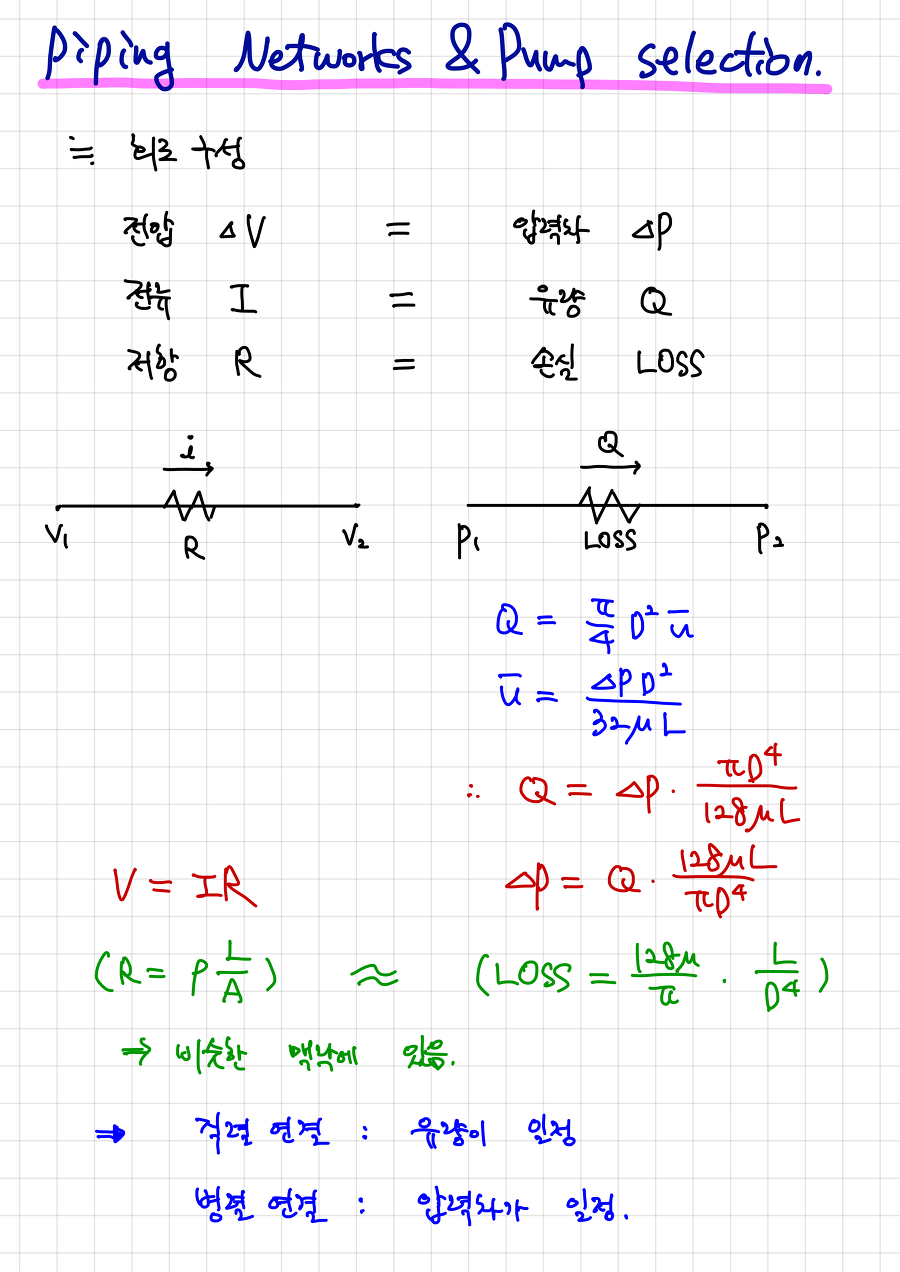 Piping Networks & Pump selection.
≒ 회로 구성
전압 ΔV = 압력차 ΔP
전류 I = 유량 Q
저항 R = 손실 LOSS
i Q
V₁ R V₂ P₁ LOSS P₂
Q = π/4 D² ū
ū = ΔP D² / 32μL
∴ Q = ΔP · πD⁴ / 128μL
V = IR ΔP = Q · 128μL / πD⁴
(R = ρ L/A) ≈ (LOSS = 128μ/π · L/D⁴)
⇒ 비슷한 맥락에 있음.
⇒ 직렬 연결 : 유량이 일정
병렬 연결 : 압력차가 일정.